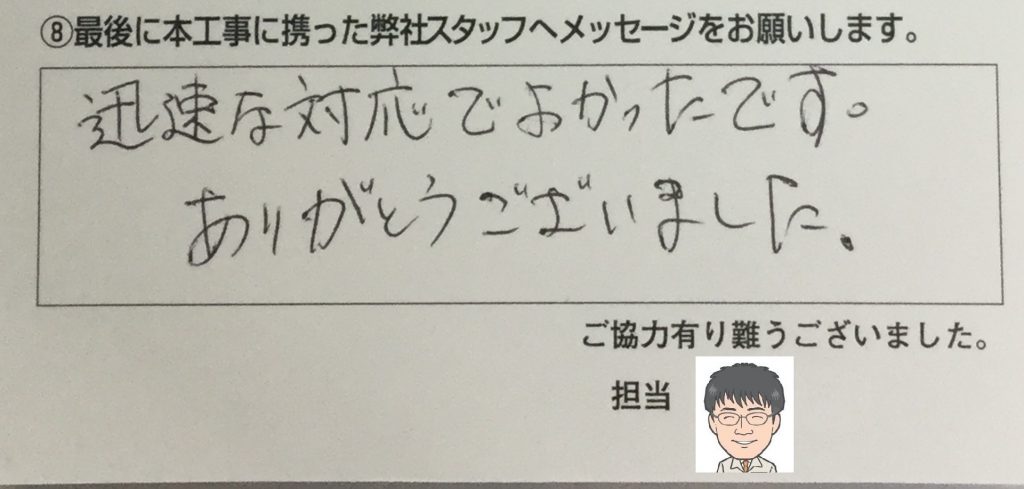 ⑧最後に本工事に携った弊社スタッフへメッセージをお願いします。
迅速な対応でよかったです。
ありがとうございました.
ご協力有り難うございました。
担当